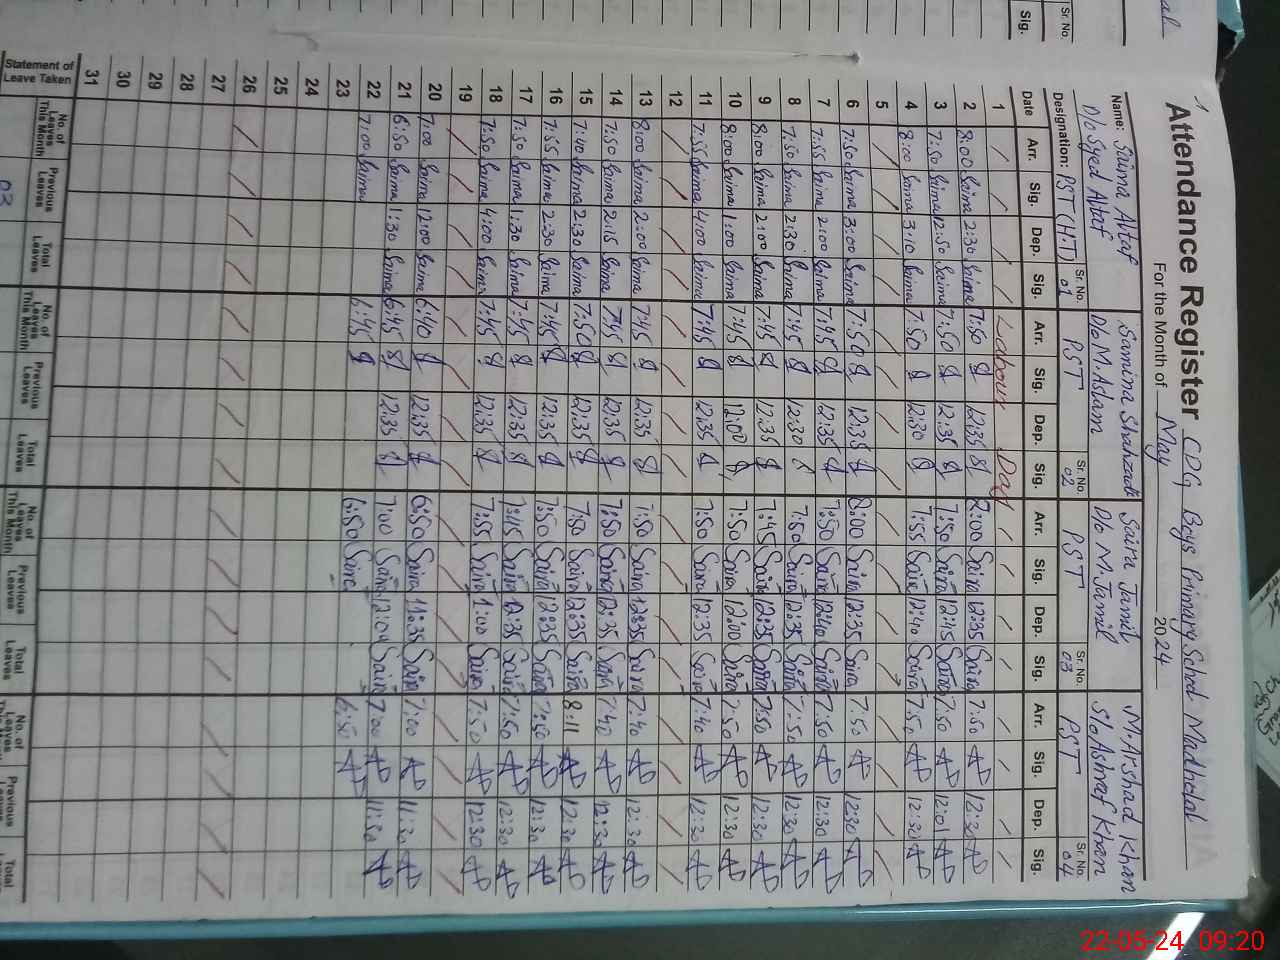 Attendance Register CDG Boys Primary School Madhelal
For the Month of May 2024
Name: Saima Altaf Samina Shahzadi Saira Jamil M. Arshad Khan
D/o Syed Altaf D/o M. Aslam D/o M. Jamil S/o Ashraf Khan
Designation: PST (H.T) Sr. No. 01 PST Sr. No. 02 PST Sr. No. 03 PST Sr. No. 04
Date Arr. Sig. Dep. Sig. Arr. Sig. Dep. Sig. Arr. Sig. Dep. Sig. Arr. Sig. Dep. Sig.
1 Labour Day
2 8:00 Saima 2:30 Saima 7:50 12:35 8:00 Saira 12:35 Saira 7:50 12:30
3 7:50 Saima 12:50 Saima 7:50 12:35 7:50 Saira 12:45 Saira 7:50 12:01
4 8:00 Saima 3:10 Saima 7:50 12:30 7:55 Saira 12:40 Saira 7:50 12:30
5
6 7:50 Saima 3:00 Saima 7:50 12:35 8:00 Saira 12:35 Saira 7:50 12:30
7 7:55 Saima 2:00 Saima 7:45 12:35 7:50 Saira 12:40 Saira 7:50 12:30
8 7:50 Saima 2:30 Saima 7:45 12:30 7:50 Saira 12:35 Saira 7:50 12:30
9 8:00 Saima 2:00 Saima 7:45 12:35 7:45 Saira 12:35 Saira 7:50 12:30
10 8:00 Saima 1:00 Saima 7:45 12:00 7:50 Saira 12:00 Saira 7:50 12:30
11 7:55 Saima 4:00 Saima 7:45 12:35 7:50 Saira 12:35 Saira 7:40 12:30
12
13 8:00 Saima 2:00 Saima 7:45 12:35 7:50 Saira 12:35 Saira 7:40 12:30
14 7:50 Saima 2:15 Saima 7:45 12:35 7:50 Saira 12:35 Saira 7:40 12:30
15 7:40 Saima 2:30 Saima 7:50 12:35 7:50 Saira 12:35 Saira 8:11 12:30
16 7:55 Saima 2:30 Saima 7:45 12:35 7:50 Saira 12:35 Saira 7:50 12:30
17 7:50 Saima 1:30 Saima 7:45 12:35 7:45 Saira 12:35 Saira 7:50 12:30
18 7:50 Saima 4:00 Saima 7:45 12:35 7:55 Saira 1:00 Saira 7:50 12:30
19
20 7:00 Saima 12:00 Saima 6:40 12:35 6:50 Saira 11:35 Saira 7:00 11:30
21 6:50 Saima 1:30 Saima 6:45 12:35 7:00 Saira 12:04 Saira 7:00 11:30
22 7:00 Saima 6:45 6:50 Saira 6:50
23
24
25
26
27
28
29
30
31
Statement of Leave Taken No. of Leaves This Month Previous Leaves Total Leaves No. of Leaves This Month Previous Leaves Total Leaves No. of Leaves This Month Previous Leaves Total Leaves No. of Leaves Previous Leaves Total
03
Sr. No.
Sig.
22-05-24 09:20